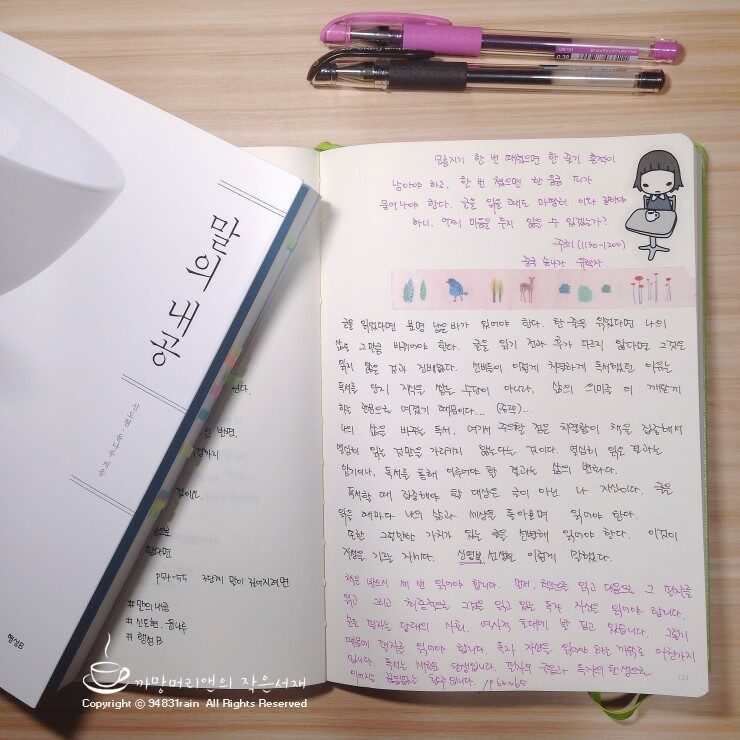 말의 내공
신도현·윤나루 지음
행성B
모름지기 한 번 때렸으면 한 줄기 흔적이
남아야 하고, 한 번 쳤으면 한 움큼 피가
묻어나야 한다. 글을 읽을 때도 마땅히 이와 같아야
하니, 어찌 마음을 두지 않을 수 있겠는가?
주희 (1130~1200)
중국 송나라 유학자
글을 읽었다면 분명 남은 바가 있어야 한다. 한 글을 읽었다면 나의
삶은 그만큼 바뀌어야 한다. 글을 읽기 전과 후가 다르지 않다면 그것은
읽지 않은 것과 진배없다. 선비들이 이렇게 치열하게 독서했던 이유는
독서를 단지 지식을 쌓는 수단이 아니라, 삶의 의미를 더 깨닫게
하는 행위으로 여겼기 때문이다... (중략)...
나의 삶을 바꾸는 독서. 여기서 주의할 점은 치열함이 책을 집중해서
열심히 읽는 것만을 가리키지 않는다는 것이다. 열심히 읽은 결과는
암기이나, 독서를 통해 이루어야 할 결과는 삶의 변화다.
독서할 때 집중해야 할 대상은 글이 아닌 나 자신이다. 글을
읽을 때마다 나의 삶과 세상을 돌아보며 읽어야 한다.
또한 그렇게할 가치가 있는 글을 선별해 읽어야 한다. 이것이
지성을 기르는 자세다. 신영복 선생은 이렇게 말했다.
책은 반드시 세 번 읽어야 합니다. 먼저 텍스트를 읽고 다음으로 그 필자를
읽고 그리고 최종적으로 그것을 읽고 있는 독자 자신을 읽어야 합니다.
모든 필자는 당대의 사회, 역사적 토대에 발 딛고 있습니다. 그렇기
때문에 필자를 읽어야 합니다. 독자 자신을 읽어야 하는 까닭도 마찬가지
입니다. 독서는 새로운 탄생입니다. 필자의 죽음과 독자의 탄생으로
이어지는 끊임없는 탈주입니다. /p64~65
123
것이다.
한다면
p74~75 지당케 말이 깊어지려면
#말의내공
#신도현·윤나루
#행성B
까망머리앤의 작은서재
Copyright © 94831rain All Rights Reserved